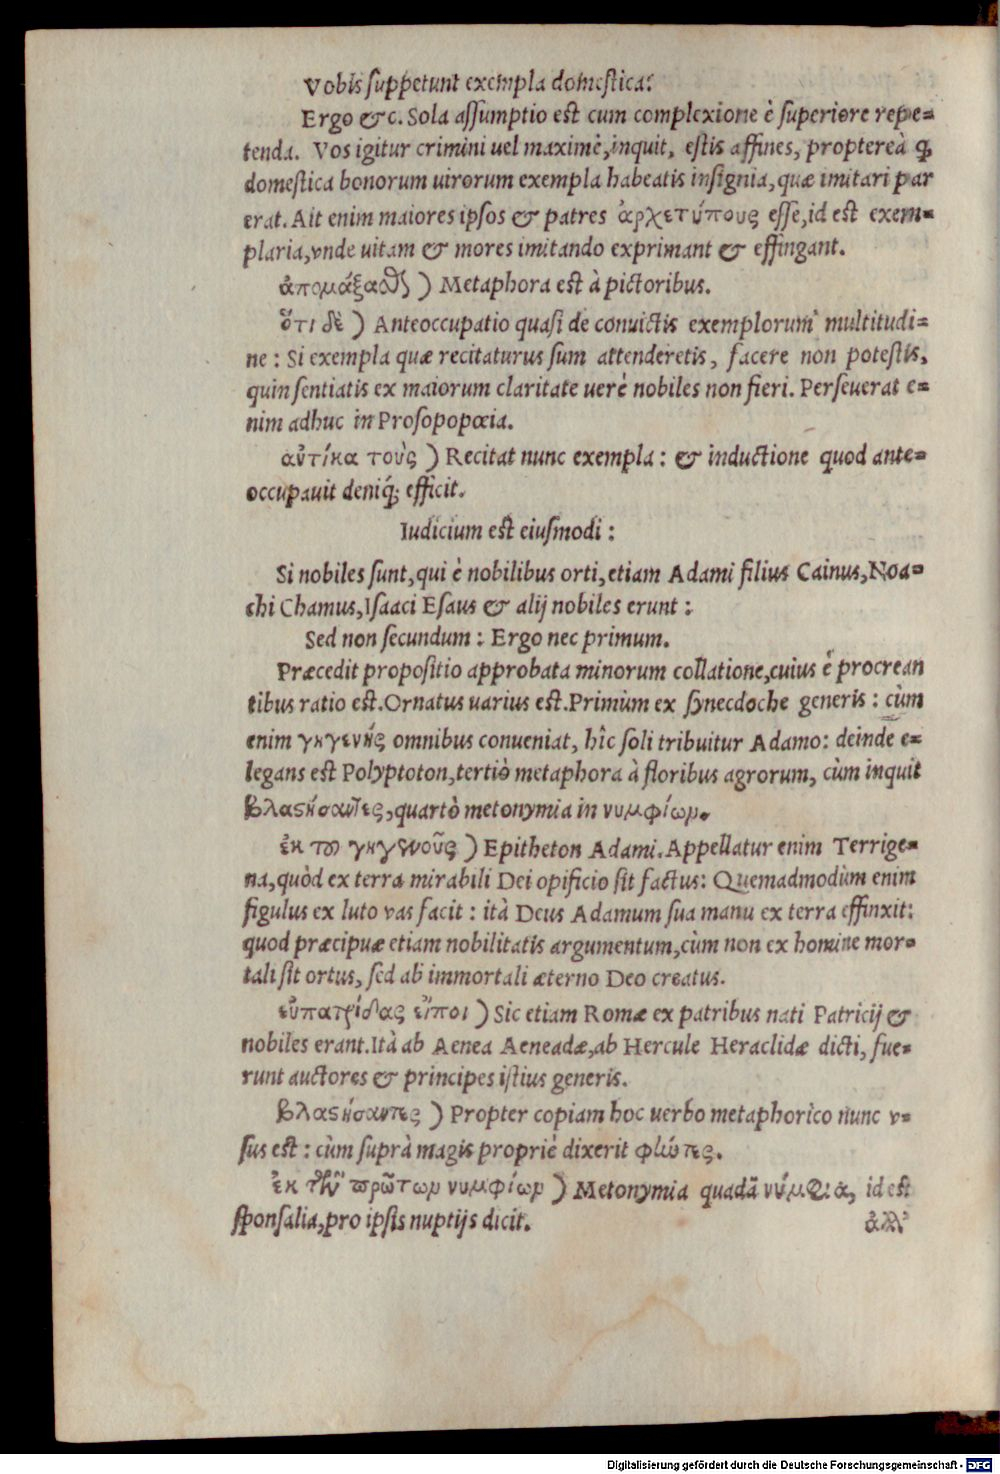 Vobis suppetunt exempla domestica:
Ergo &c. Sola assumptio est cum complexione è superiore repe=
tenda. Vos igitur crimini uel maximè, inquit, estis affines, propterea q́;
domestica bonorum uirorum exempla habeatis insignia, quæ imitari par
erat. Ait enim maiores ipsos & patres ἀρχετύπους esse, id est exem=
plaria, vnde uitam & mores imitando exprimant & effingant.
ἀπομάξαϑϗ) Metaphora est à pictoribus.
ὅτι δὲ) Anteoccupatio quasi de conuictis exemplorum multitudi=
ne: Si exempla quæ recitaturus sum attenderetis, facere non potestis,
quin sentiatis ex maiorum claritate uerè nobiles non fieri. Perseuerat e=
nim adhuc in Prosopopœia.
αὐτίκα τοὺς) Recitat nunc exempla: & inductione quod ante=
occupauit deniq́; efficit.
Iudicium est eiusmodi:
Si nobiles sunt, qui è nobilibus orti, etiam Adami filius Cainus, Noa=
chi Chamus, Isaaci Esaus & alij nobiles erunt:
Sed non secundum: Ergo nec primum.
Præcedit propositio approbata minorum collatione, cuius è procrean
tibus ratio est. Ornatus uarius est. Primùm ex synecdoche generis: cùm
enim γηγενής omnibus conueniat, hîc soli tribuitur Adamo: deinde e=
legans est Polyptoton, tertiò metaphora à floribus agrorum, cùm inquit
βλαϛήσαντες, quartò metonymia in νυμφίων.
ἐκ τοῦ γηγενοῦς) Epitheton Adami. Appellatur enim Terrige=
na, quòd ex terra mirabili Dei opificio sit factus: Quemadmodùm enim
figulus ex luto vas facit: ità Deus Adamum sua manu ex terra effinxit:
quod præcipuæ etiam nobilitatis argumentum, cùm non ex homine mor=
tali sit ortus, sed ab immortali æterno Deo creatus.
εὐπατρίδας εἴποι) Sic etiam Romæ ex patribus nati Patricij &
nobiles erant. Ità ab Aenea Aeneadæ, ab Hercule Heraclidæ dicti, fue=
runt auctores & principes istius generis.
βλαϛήσαντες) Propter copiam hoc uerbo metaphorico nunc v=
sus est: cùm suprà magis propriè dixerit φῶντες.
ἐκ τῶν πρώτων νυμφίων) Metonymia quadã νύμφια, id est
sponsalia, pro ipsis nuptijs dicit.
ἀλλ'
Digitalisierung gefördert durch die Deutsche Forschungsgemeinschaft - DFG